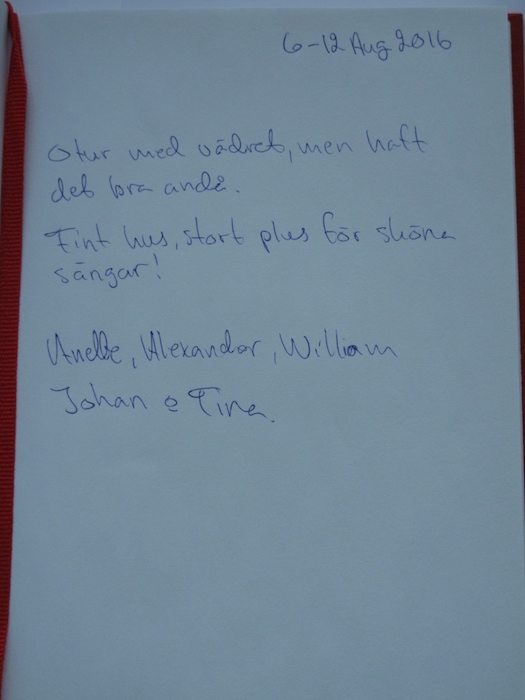 6-12 Aug 2016
Otur med vädret, men haft
det bra ändå.
Fint hus, stort plus för sköna
sängar!
Alexander, William
Johan o Tina.